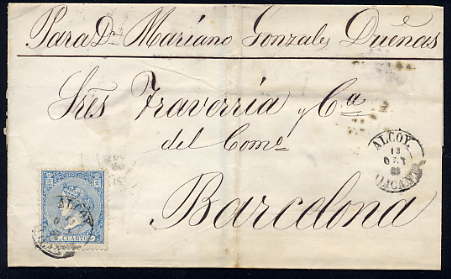 Para Dn. Mariano Gonzales Dueñas
Sres Traverría y Ca
del Come
Barcelona
ALCOY
13
OCT
ALICANTE
ALCOY
4 CUARTOS